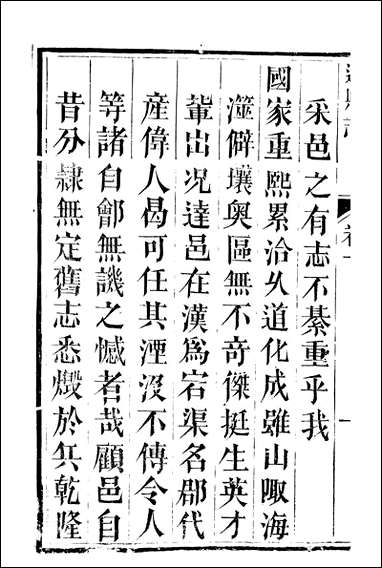 采邑之有志不綦重乎我
國家重熙累洽久道化成雖山陬海
澨僻壤奧區無不奇傑挺生英才
輩出况達邑在漢爲宕渠名郡代
產偉人曷可任其湮沒不傳令人
等諸自鄶無譏之憾者哉顧邑自
昔分隸無定舊志悉燬於兵乾隆